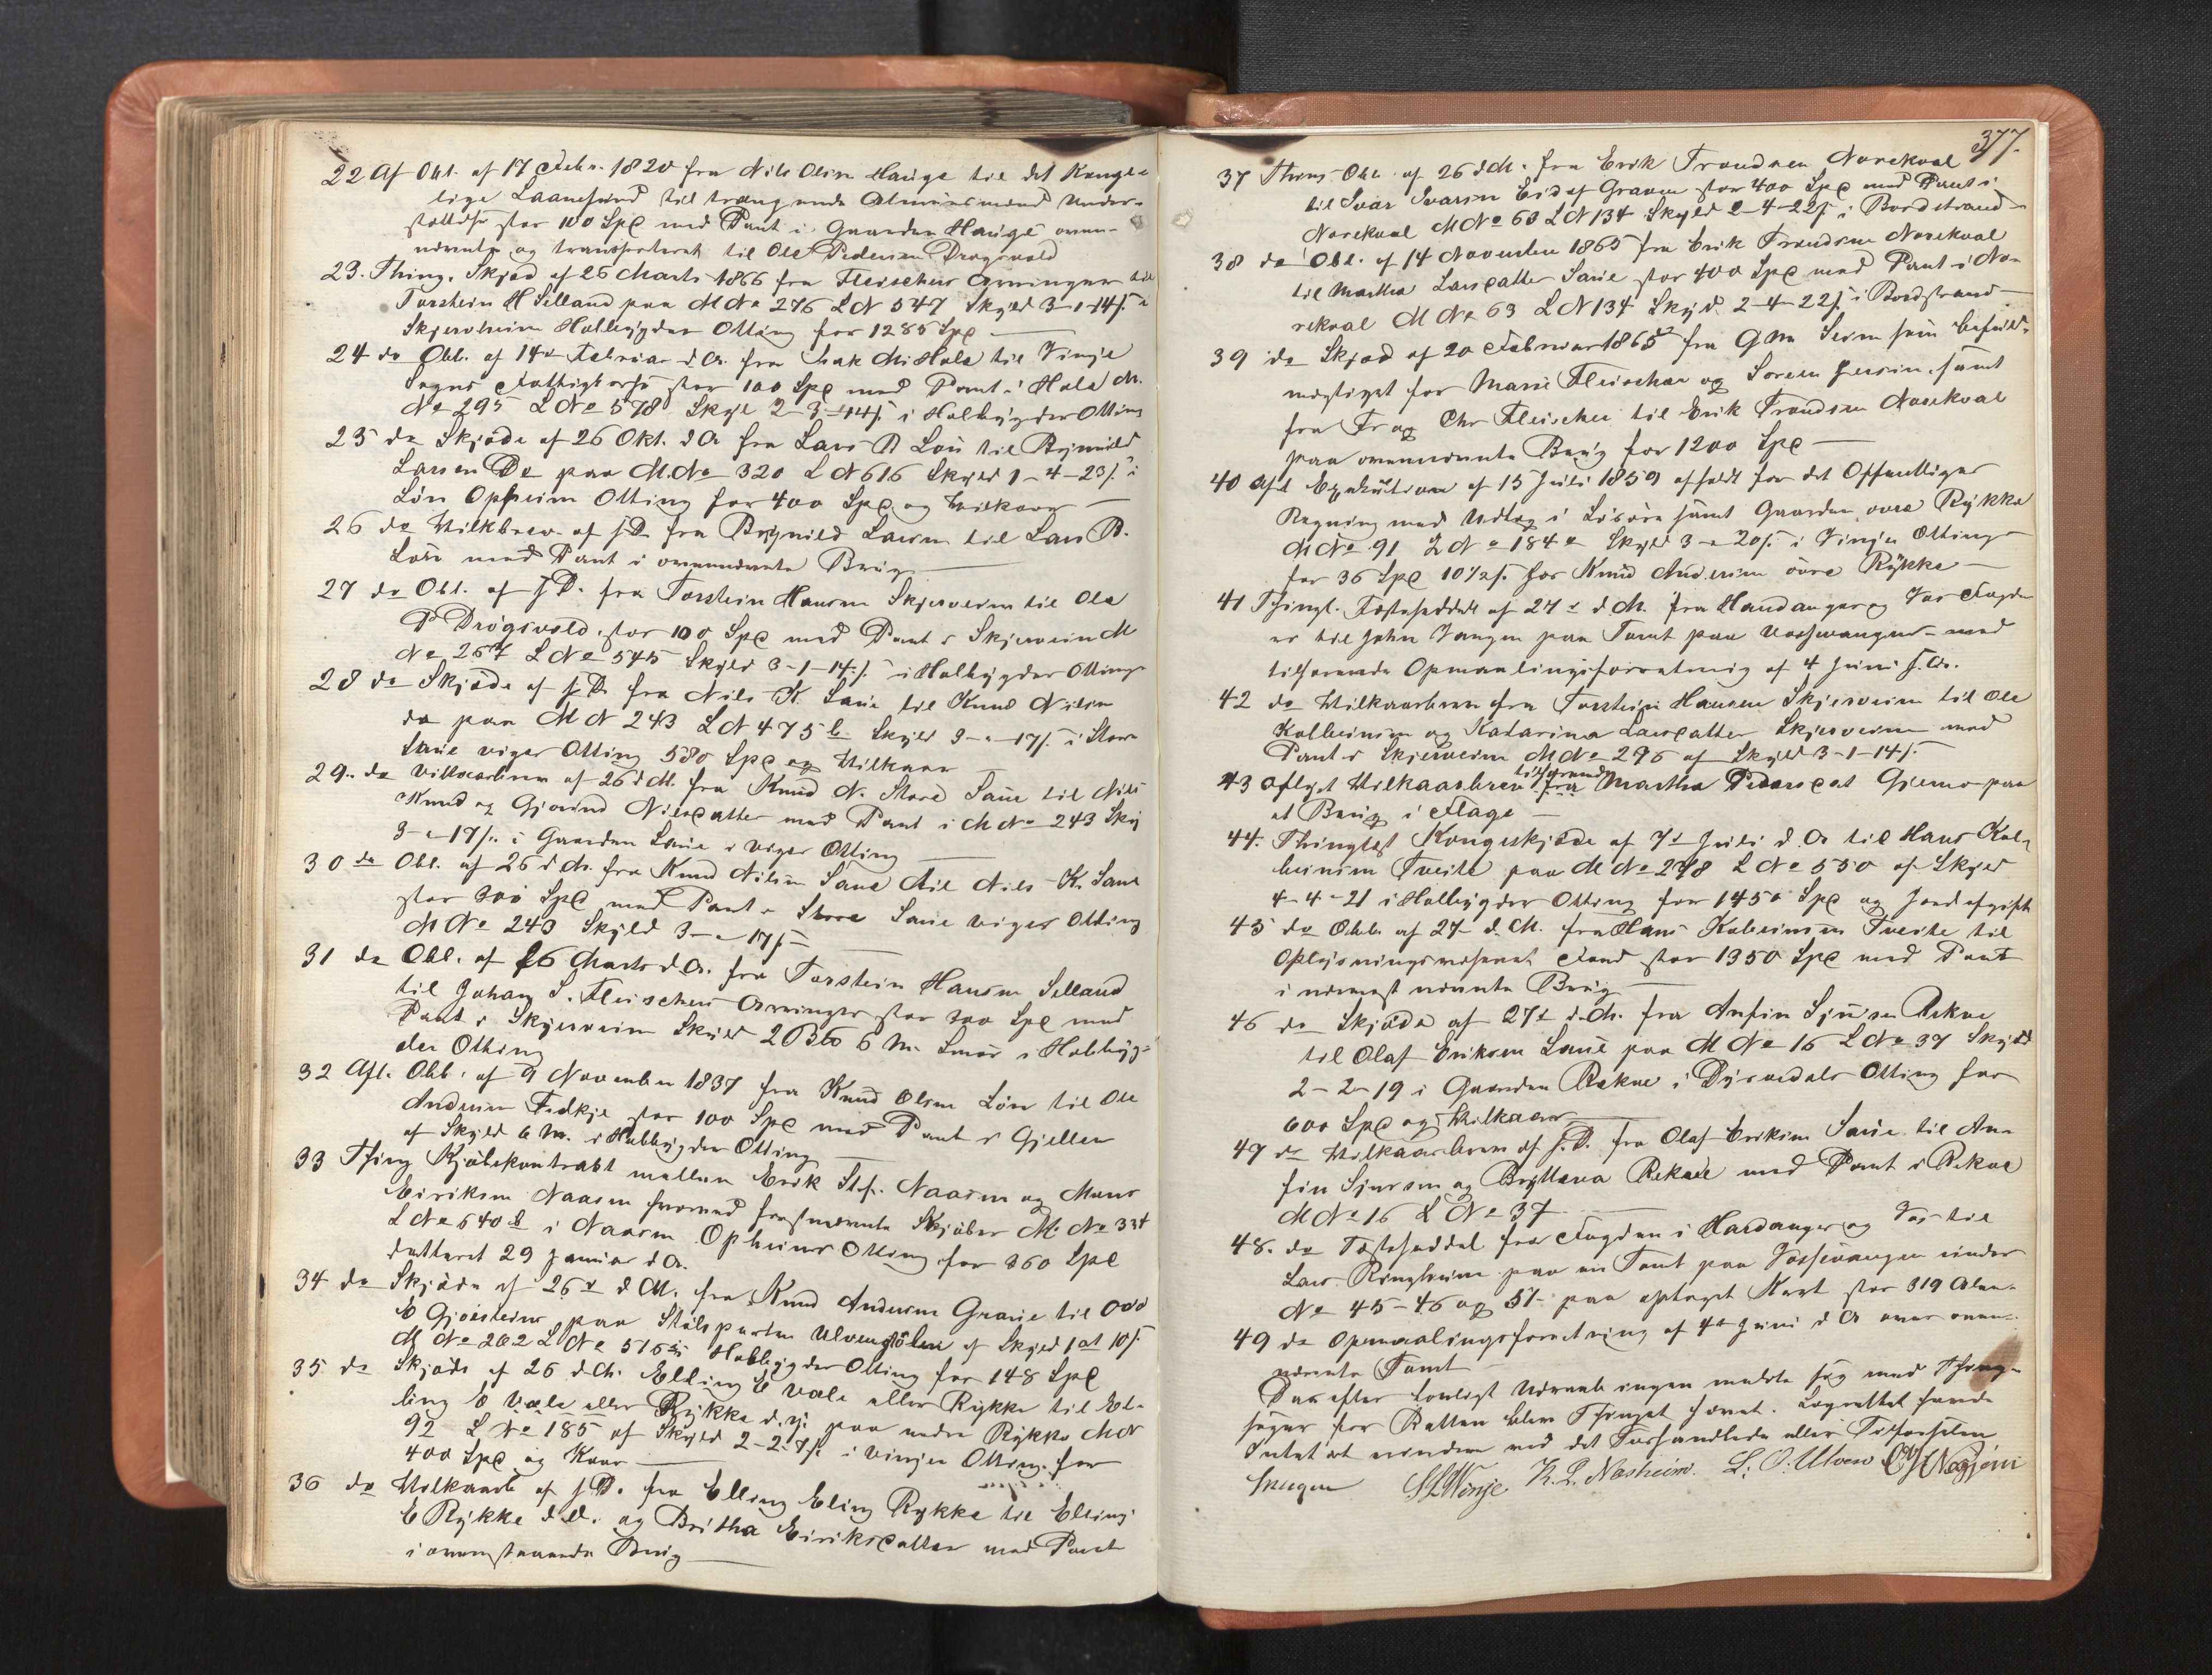 22 Af Obl. af 17 Febr. 1820 fra Nils Olsen Hauge til det Konge-
lige Laanefond til trængende Almuesmænds Under-
støttelse stor 100 Spd med Pant i Gaarden Hauge oven-
nævnte og transporteret til Ole Pedersen Drøgsvold
23. Thing. Skjøde af 26 Marts 1866 fra Fleischers Arvinger til
Torstein H Selland paa M No 276 L N 547 Skyld 3-1-14 ß i
Skjerveheim Holbygder Otting for 1285 Spd
24 do Obl. af 14de Februar d A. fra Isak M Hole til Vinje
Sogns Fattigkasse stor 100 Spd med Pant i Hole M.
No 295 L No 578 Skyld 2-3-14 ß i Holbygder Otting
25 do Skjøde af 26 Okt. d A fra Lars B Løn til Brynild
Larsen Do paa M. No 320 L N 616 Skyld 1-4-23 ß i
Løn Opheim Otting for 400 Spd og Vilkaar
26 do Vilkbrev. af s D. fra Brynild Larsen til Lars B.
Løn med Pant i ovennævnte Brug
27 do Obl. af s D. fra Torstein Hansen Skjerveim til Ole
P Drøgsvold, stor 100 Spd med Pant i Skjerveim M
No 267 L No 545 Skyld 3-1-14 ß i Holbygder Otting
28 do Skjøde af s D. fra Nils K. Saue til Knud Nilsen
do paa M N 243 L N 475 b Skyld 3-"-17 ß i Store
Saue Viger Otting 580 Spd og Vilkaar
29. do Vilkaarbrev af 26 d M. fra Knud N. Store Saue til Nils
Knud og Gjørond Nilsdatter med Pant i M No 243 Sky
3-"-17 ß i Gaarden Saue i Viger Otting
30 do Obl. af 26 d M. fra Knud Nilsen Saue til Nils K. Saue
stor 300 Spd med Pant i Store Saue Viger Otting
M No 243 Skyld 3-"-17 ß
31 do Obl. af 26 Marts d A. fra Torstein Hansen Selland
til Johan S. Fleischers Arvinger stor 300 Spd med
Pant i Skjerveim Skyld 2 Bto 6 M. Smør i Holbyg-
der Otting
32 Afl. Obl. af 9 November 1837 fra Knud Olsen Løn til Ole
Andersen Fedkje stor 100 Spd med Pant i Gjellen
af Skyld 6 M. i Holbygder Otting
33 Thing Kjøbekontrakt mellem Erik Stef. Naasen og Mons
Eiriksen Naasen hvorved forstnævnte Skjøber M. No 334
L No 640 b i Naasen Opheims Otting for 360 Spd
datteret 29 Januar d A.
34 do Skjøde af 26de d M. fra Knud Andersen Graue til Odd
E Gjøesteins paa Stølsparten Ulvenstølen af Skyld 1 ort 10 ß
M No 262 L No 516 i Holbygder Otting for 148 Spd
35 do Skjøde af 26 d M. Elling E Væle eller Rykke til El-
ling E Væle eller Rykke d. y. paa nedre Rykke M N
92 L No 185 af Skyld 2-2-7 ß i Vinjes Otting for
400 Spd og Kaar
36 do Vilkaarb af s D. fra Elling Elling Rykke til Elling
E Rykke d. E. og Britha Eiriksdatter med Pant
i ovenstaaende Brug
377.
37 Things Obl. af 26 d M. fra Erik Trondsen Norekval
til Ivar Ivarsen Eid af Graven stor 400 Spd med Pant i
Norekval M No 63 L N 134 Skyld 2-4-22 ß i Bordstrand
38 do Obl. af 14 November 1865 fra Erik Trondsen Norekval
til Martha Larsdatter Saue stor 400 Spd med Pant i No-
rekval M No 63 L N 134 Skyld. 2-4-22 ß i Bordstrand
39 do Skjøde af 20 Februar 1865 fra G M Seim som befuld-
mægtiget for Marie Fleischer og Søren Jersin samt
fra Fr og Chr Fleischer til Erik Trondsen Norekval
paa ovennævnte Brug for 1200 Spd
40 Afl Exekution af 15 Juli 1859 afholdt for det Offentliges
Regning med Udlæg i Løsøre samt Gaarden øvre Rykke
M No 91 L No 184 a Skyld 3-"-20 ß i Vinjes Otting
for 36 Spd 10½ ß hos Knud Andersen øvre Rykke
41 Thingl. Fæsteseddel af 27de d M. fra Hardanger og Vos Fogde-
ri til John Vangen paa Tomt paa Vossevangen med
tilhørende Opmaalingsforretning af 4 Juni s. A.
42 do Vilkaarbrev fra Torstein Hansen Skjerveim til Ole
Kolbeinsen og Katarina Larsdatter Skjerveim med
Pant i Skjerveim M No 276 af Skyld 3-1-14 ß
43 Aflyst Vilkaarbrev tilhørende fra Martha Pedersdat Gjerme paa
et Brug i Flage
44. Thinglæst Kongeskjøde af 7de Juli d. A til Hans Kol-
beinsen Tveite paa M No 278 L No 550 af Skyld
4-4-21 i Holbygder Otting for 1450 Spd og Jordafgift
45 do Obl. af 27 d. M. fra Hans Kolbeinsen Tveite til
Oplysningsvæsenets Fond stor 1350 Spd med Pant
i nærmest nævnte Brug
46 do Skjøde af 27de d. M. fra Anfin Sjursen Rekve
til Olaf Eriksen Saue paa M No 16 L No 37 Skyld
2-2-19 i Gaarden Rekve i Dyrvedals Otting for
600 Spd og Vilkaar
47 do Vilkaarbrev af s. D. fra Olaf Eriksen Saue til An-
fin Sjursen og Brytteva Rekve med Pant i Rekve
M No 16 L No 37
48. do Fæsteseddel fra Fogden i Hardanger og Vos til
Lars Ringheim paa en Tomt paa Vossevangen under
No 45-46 og 51 paa optaget Kart stor 319 Alen.
49 do Opmaalingsforretning af 4de Juni d A over oven-
nævnte Tomt
Da efter lovligt Udraab ingen meldte sig med Thing-
søgn for Retten blev Thinget hævet. Lagrettet havde
Intet at erindre ved det Forhandlede eller Tilførselen
Skugen S L Vinje K. L. Nasheim. L. O. Ulven